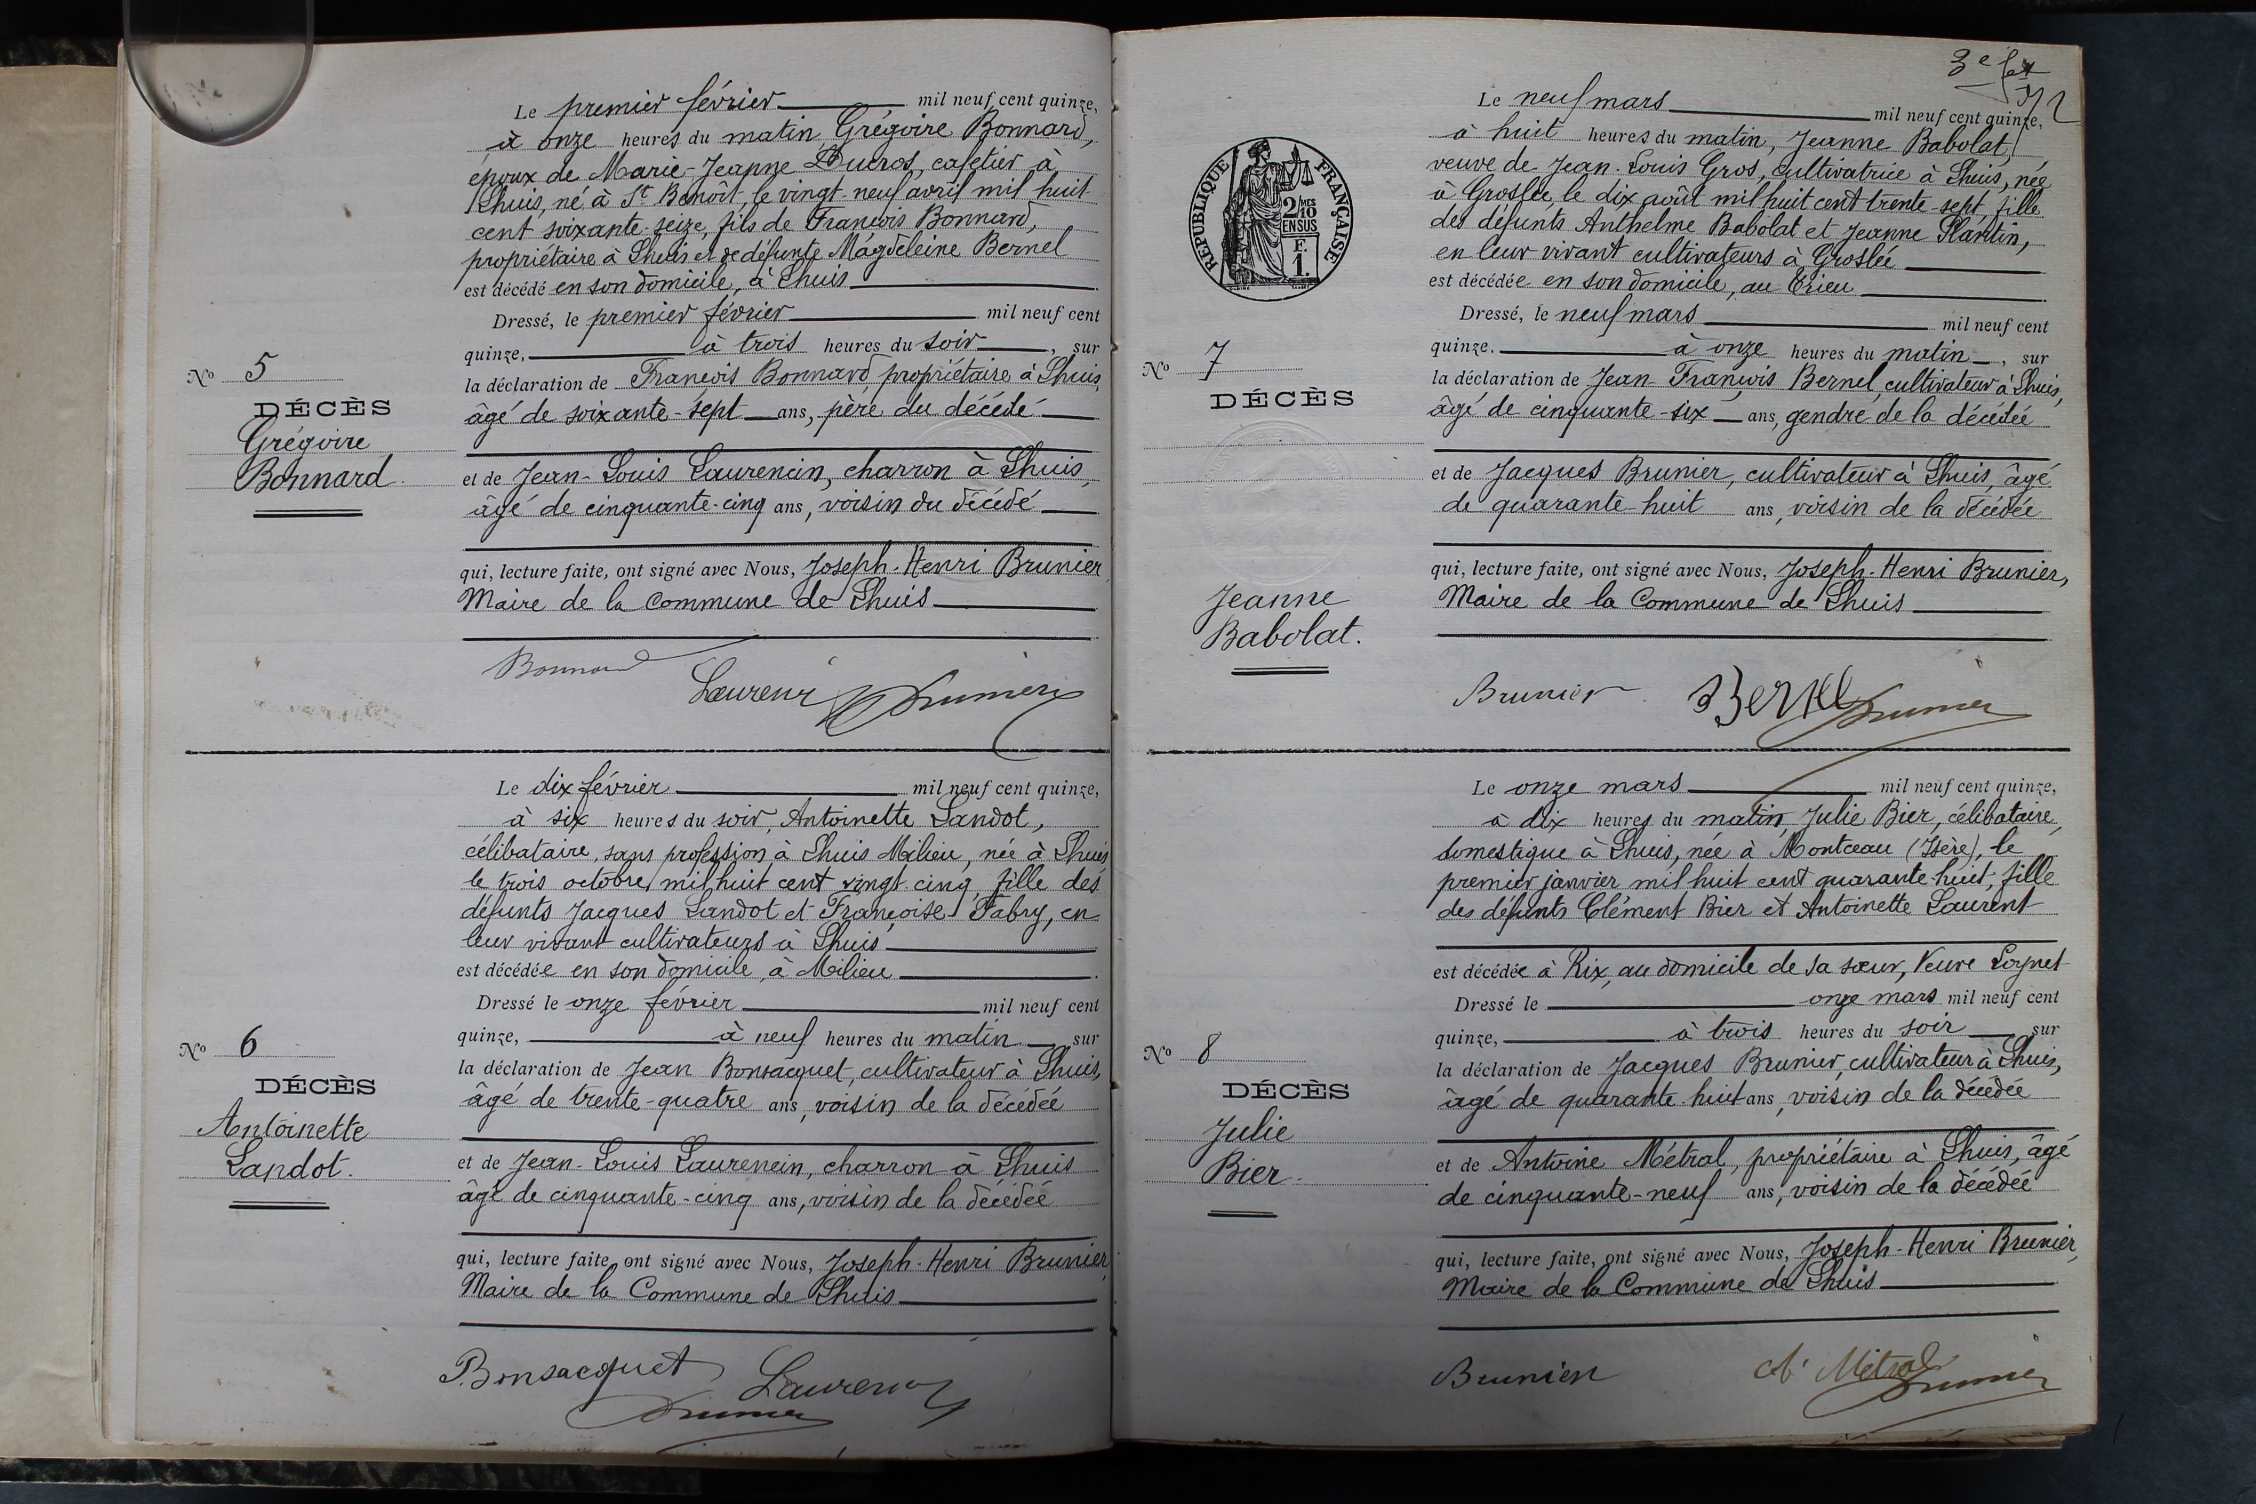 Le premier février mil neuf cent quinze,
à onze heures du matin, Grégoire Bonnard,
époux de Marie-Jeanne Ducros, cafetier à
Lhuis, né à St Benoît, le vingt-neuf avril mil huit
cent soixante-seize, fils de François Bonnard,
propriétaire à Lhuis et de défunte Magdeleine Bernel
est décédé en son domicile, à Lhuis
Dressé, le premier février mil neuf cent
quinze, à trois heures du soir, sur
la déclaration de François Bonnard propriétaire à Lhuis,
âgé de soixante-sept ans, père du décédé
et de Jean-Louis Laurencin, charron à Lhuis,
âgé de cinquante-cinq ans, voisin du décédé
qui, lecture faite, ont signé avec Nous, Joseph-Henri Brunier
Maire de la Commune de Lhuis
No 5
DÉCÈS
Grégoire
Bonnard
Bonnard
Brunier
Le dix février mil neuf cent quinze,
à six heures du soir, Antoinette Landot,
célibataire, sans profession, à Lhuis Milieu, née à Lhuis
le trois octobre mil huit cent vingt-cinq, fille des
défunts Jacques Landot et Françoise Fabry, en
leur vivant cultivateurs à Lhuis
est décédée en son domicile, à Milieu
Dressé le onze février mil neuf cent
quinze, à neuf heures du matin, sur
la déclaration de Jean Bonsacquet, cultivateur à Lhuis,
âgé de trente-quatre ans, voisin de la décédée
et de Jean-Louis Laurencin, charron à Lhuis
âgé de cinquante-cinq ans, voisin de la décédée
qui, lecture faite, ont signé avec Nous, Joseph-Henri Brunier,
Maire de la Commune de Lhuis
No 6
DÉCÈS
Antoinette
Landot.
Bonsacquet
Brunier
3e
RÉPUBLIQUE FRANÇAISE
2/10 MES
EN SUS
F.
1.
Le neuf mars mil neuf cent quinze,
à huit heures du matin, Jeanne Babolat,
veuve de Jean-Louis Gros, cultivatrice à Lhuis, née
à Groslée, le dix août mil huit cent trente-sept, fille
des défunts Anthelme Babolat et Jeanne Plantin,
en leur vivant cultivateurs à Groslée
est décédée en son domicile, au Crieu
Dressé, le neuf mars mil neuf cent
quinze. à onze heures du matin, sur
la déclaration de Jean-François Bernel, cultivateur à Lhuis,
âgé de cinquante-six ans, gendre de la décédée
et de Jacques Brunier, cultivateur à Lhuis, âgé
de quarante-huit ans, voisin de la décédée
qui, lecture faite, ont signé avec Nous, Joseph-Henri Brunier,
Maire de la Commune de Lhuis
No 7
DÉCÈS
Jeanne
Babolat.
Brunier
Bernel
Brunier
Le onze mars mil neuf cent quinze,
à dix heures du matin, Julie Bier, célibataire,
domestique à Lhuis, née à Montceau (Isère), le
premier janvier mil huit cent quarante-huit, fille
des défunts Clément Bier et Antoinette Laurent
est décédée à Rix, au domicile de sa sœur, Veuve Loynet
Dressé le onze mars mil neuf cent
quinze, à trois heures du soir sur
la déclaration de Jacques Brunier, cultivateur à Lhuis,
âgé de quarante-huit ans, voisin de la décédée
et de Antoine Métral, propriétaire à Lhuis, âgé
de cinquante-neuf ans, voisin de la décédée
qui, lecture faite, ont signé avec Nous, Joseph-Henri Brunier,
Maire de la Commune de Lhuis
No 8
DÉCÈS
Julie
Bier.
Brunier
Métral
Brunier